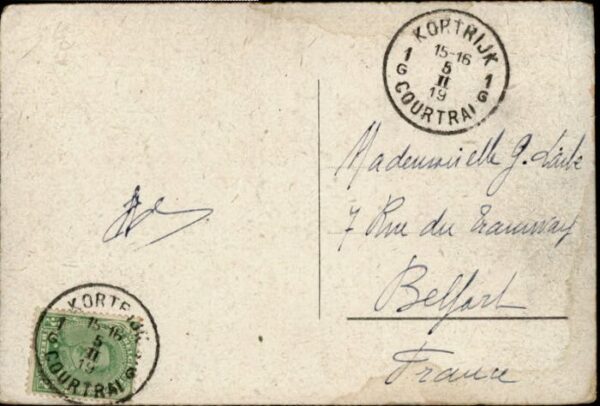 KORTRIJK
1 15-16 1
G 5 G
II
19
COURTRAI
Mademoiselle G.
7 Rue du Tramway
Belfort
France
KORTRIJK
1 15-16
G 5 G
II
19
COURTRAI